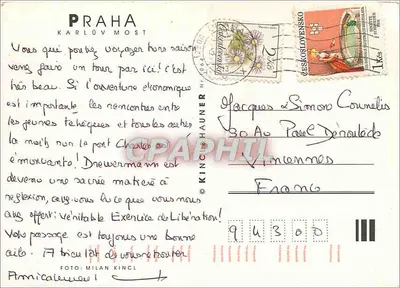 PRAHA
KARLŮV MOST
Vous qui pouvez voyager hors saison
venez faire un tour par ici! c'est
très beau. Si l'ouverture économique
est importante les rencontres entre
les jeunes tchèques et tous les autres
la nuit sur le pont Charles
émouvants! Drewermann est
devenu une sacrée matière à
réflexion, avez-vous lu ce que vous nous
avez offert: véritable Exercice de Libération!
Votre passage est toujours une bonne
A bientôt de vous retrouver
Amicalement
FOTO: MILAN KINCL
© KINCL + HAUNER
2 Kčs
Československo
ČESKOSLOVENSKO
1 Kčs
Jacques & Simone Cournelis
30 Av Paul Déroulède
Vincennes
France
94300
CPAPHIL